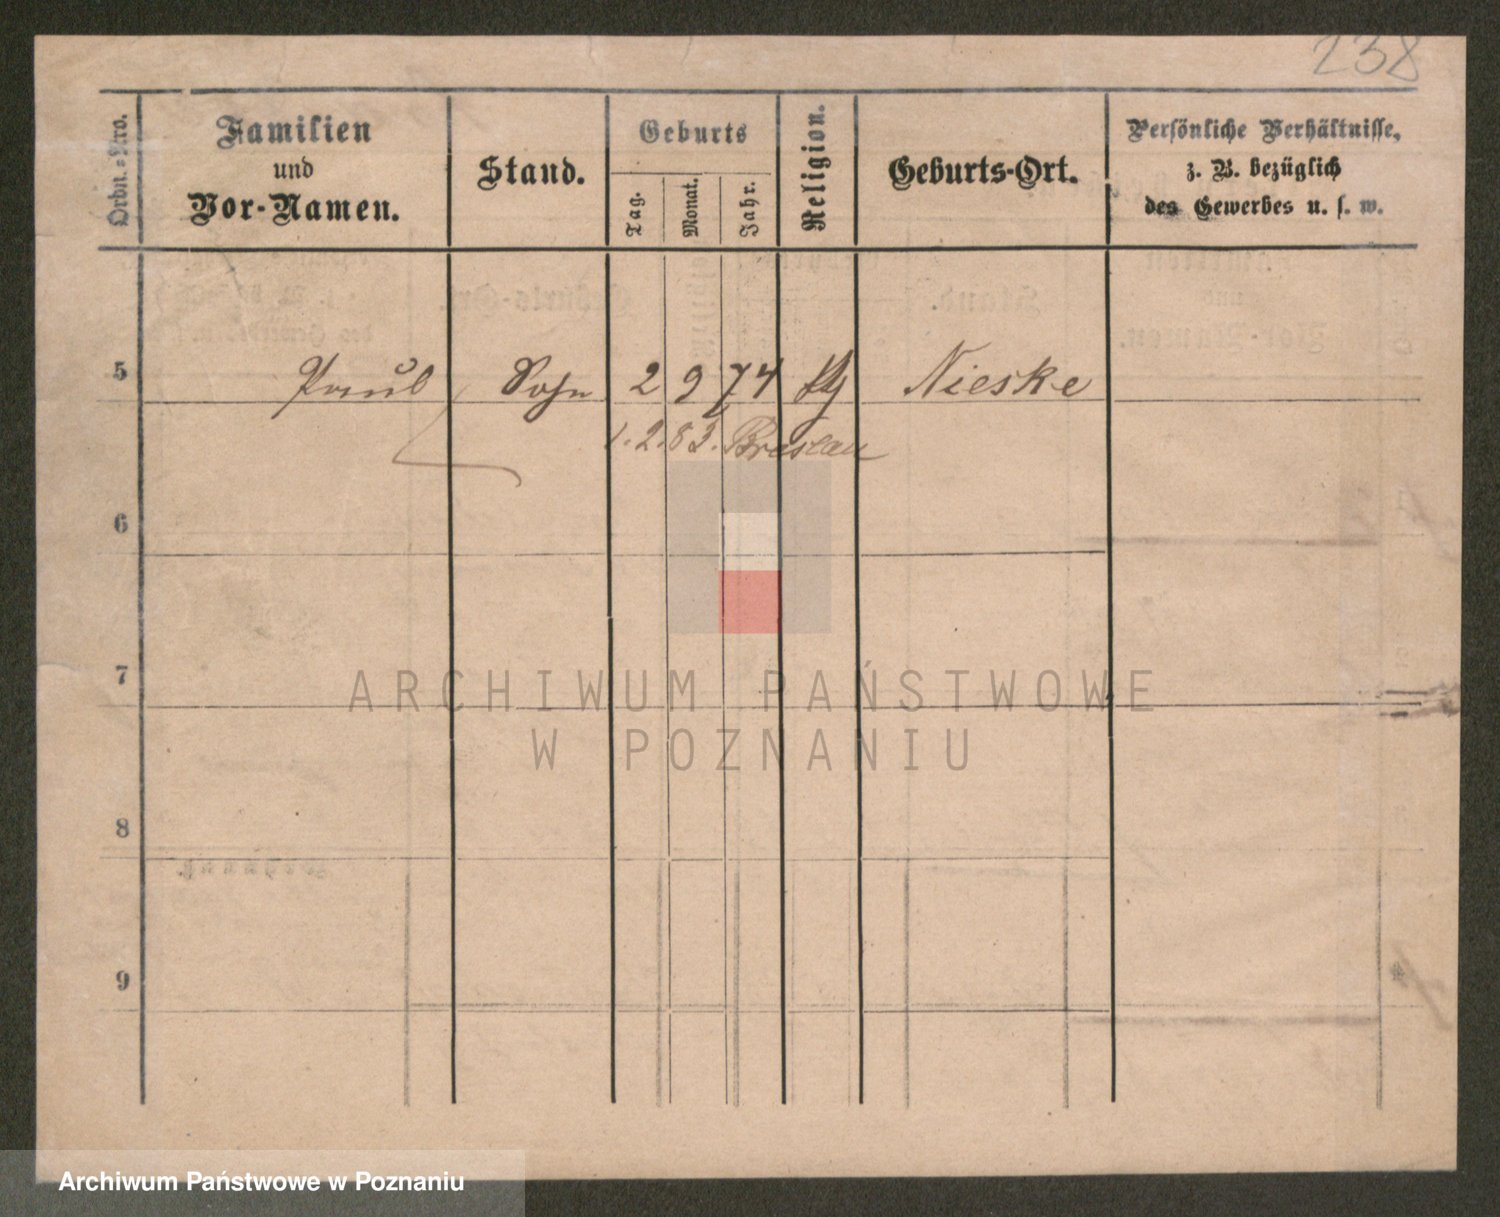 238
Ordn.=Nro.
Familien
und
Vor-Namen.
Stand.
Geburts
Tag.
Monat.
Jahr.
Religion.
Geburts-Ort.
Persönliche Verhältnisse,
z. B. bezüglich
des Gewerbes u. s. w.
5 Paul Sohn 2 9 74 Nieske
1.2.83. Breslau
6
7
8
9
ARCHIWUM PAŃSTWOWE
W POZNANIU
Archiwum Państwowe w Poznaniu